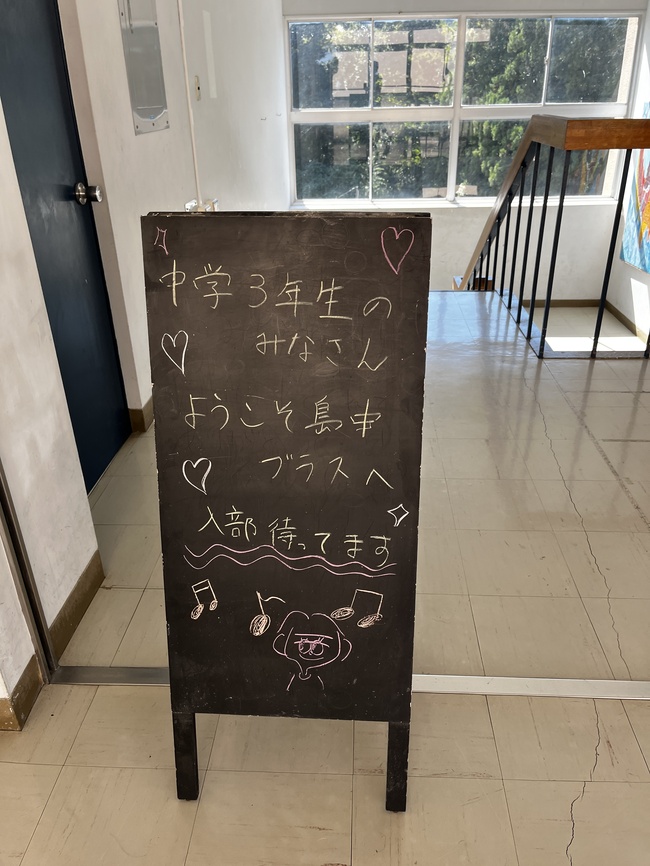 中学3年生の
みなさん
ようこそ島中
ブラスへ
入部待ってます